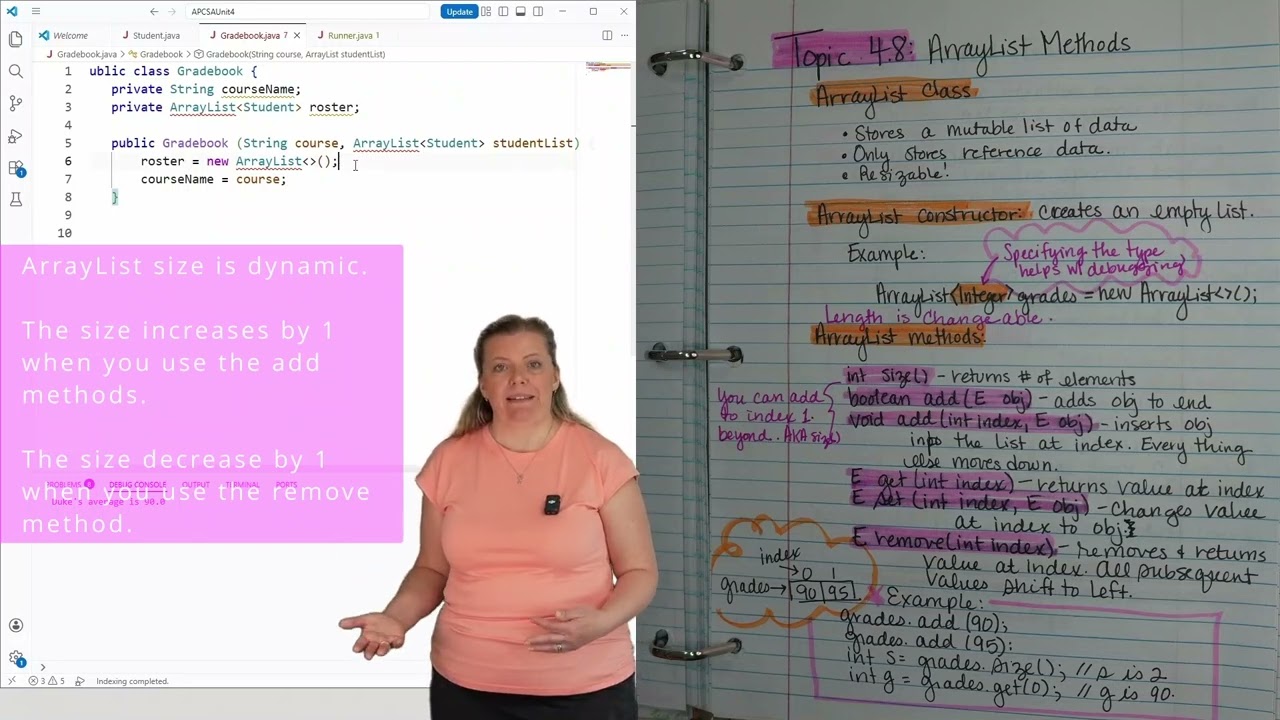 APCSAUnit4
Update
Welcome
Student.java
Gradebook.java 7
Runner.java 1
Gradebook.java > Gradebook > Gradebook(String course, ArrayList studentList)
1 ublic class Gradebook {
2 private String courseName;
3 private ArrayList<Student> roster;
4
5 public Gradebook (String course, ArrayList<Student> studentList) {
6 roster = new ArrayList<>();
7 courseName = course;
8 }
9
10
ArrayList size is dynamic.
The size increases by 1
when you use the add
methods.
The size decrease by 1
when you use the remove
method.
PROBLEMS 8 DEBUG CONSOLE OUTPUT TERMINAL PORTS
Duke's average is 90.0
3 5 Indexing completed.
Topic 4.8: ArrayList Methods
ArrayList Class
• Stores a mutable list of data
• Only stores reference data.
• Resizable!
ArrayList constructor: creates an empty list.
Example:
Specifying the type
helps w/ debugging
ArrayList<Integer> grades = new ArrayList<>();
Length is changeable.
ArrayList methods:
int size() - returns # of elements
boolean add(E obj) - adds obj to end
void add(int index, E obj) - inserts obj
into the list at index. Every thing
else moves down.
You can add
to index 1
beyond. AKA size)
E get(int index) - returns value at index
E set(int index, E obj) - changes value
at index to obj.
E remove(int index) - removes & returns
value at index. All subsequent
values shift to left.
index
0 1
grades → 90 95
Example:
grades.add(90);
grades.add(95);
int s = grades.size(); // s is 2
int g = grades.get(0); // g is 90.